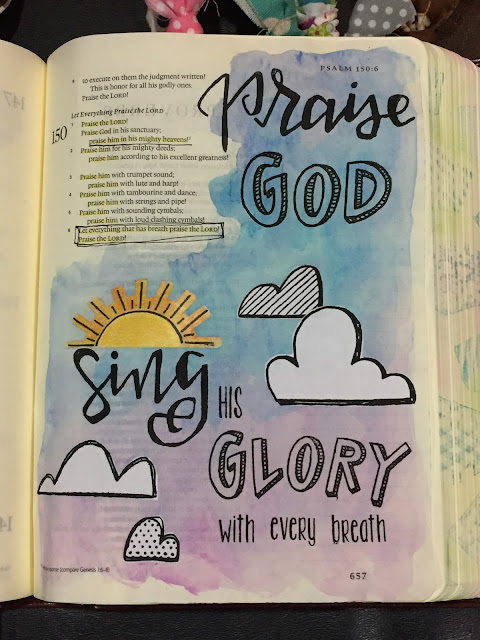 PSALM 150:6
9 to execute on them the judgment written!
This is honor for all his godly ones.
Praise the LORD!
Let Everything Praise the LORD
150
1 Praise the LORD!
Praise God in his sanctuary;
praise him in his mighty heavens!
2 Praise him for his mighty deeds;
praise him according to his excellent greatness!
3 Praise him with trumpet sound;
praise him with lute and harp!
4 Praise him with tambourine and dance;
praise him with strings and pipe!
5 Praise him with sounding cymbals;
praise him with loud clashing cymbals!
6 Let everything that has breath praise the LORD!
Praise the LORD!
Praise
GOD
Sing
HIS
GLORY
with every breath
(compare Genesis 1:6–8)
657